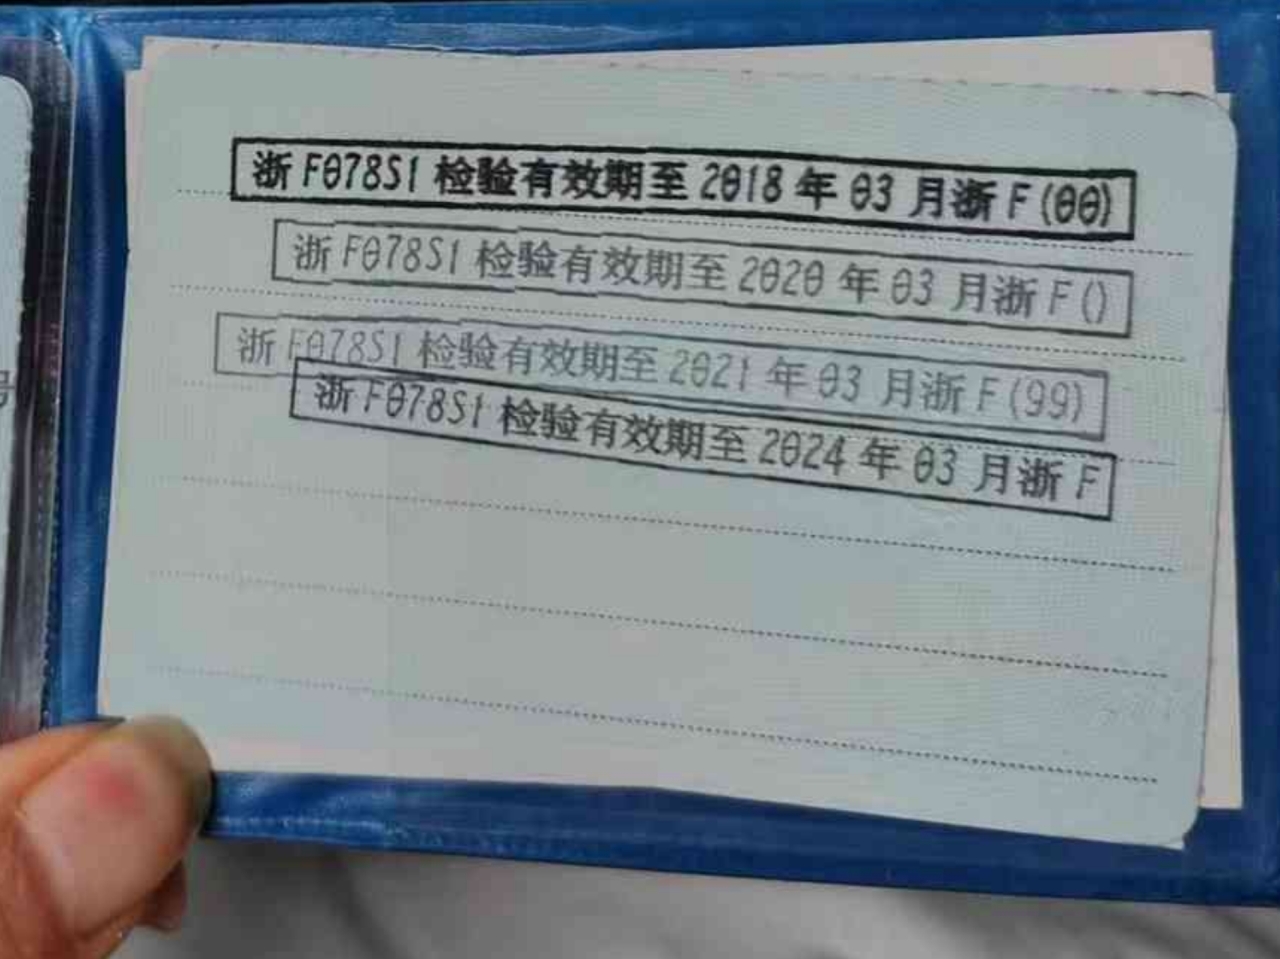 浙F078S1检验有效期至2018年03月浙F(00)
浙F078S1检验有效期至2020年03月浙F()
浙F078S1检验有效期至2021年03月浙F(99)
浙F078S1检验有效期至2024年03月浙F
号